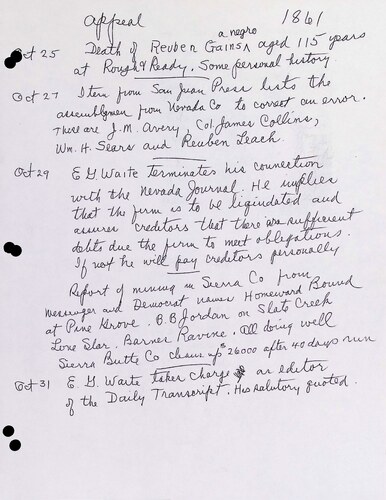 Appeal 1861
Oct 25 Death of Reuben Gains, a negro aged 115 years
at Rough & Ready. Some personal history
Oct 27 Item from San Juan Press lists the
assemblymen from Nevada Co to correct an error.
These are J.M. Avery, Col James Collins,
Wm. H. Sears and Reuben Leach.
Oct 29 E G Waite terminates his connection
with the Nevada Journal. He implies
that the firm is to be liquidated and
assures creditors that there are sufficient
debts due the firm to meet obligations.
If not he will pay creditors personally
Report of mining in Sierra Co from
Messenger and Democrat names Homeward Bound
at Pine Grove. B.B. Jordan on Slate Creek
Lone Star. Barnes Ravine. All doing well
Sierra Butte Co clean up $26000 after 40 days run
Oct 31 E. G. Waite takes charge as editor
of the Daily Transcript. His salutory quoted.